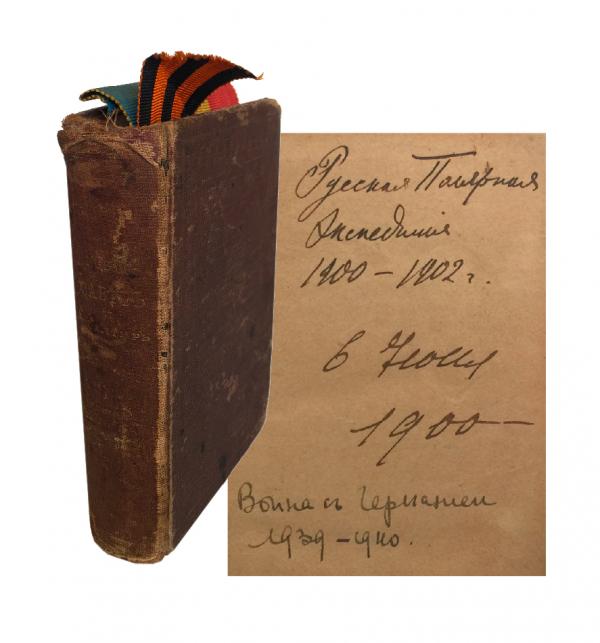 Русская Полярная
Экспедиція
1900 – 1902 г.
6
1900 –
Война съ Германіей
1939 – 1940.